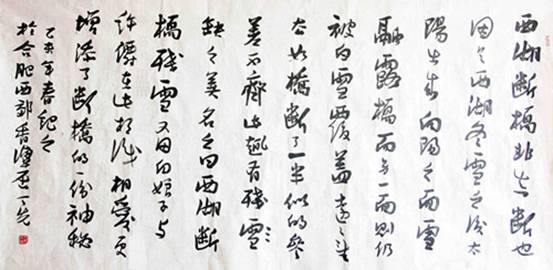 西湖断桥非真断也
因冬西湖冬雪之后太
阳出来向阳之面雪
融露桥而另一面则仍
被白雪覆盖远之望
去如桥断了一半似的参
差不齐此执有残雪
缺之美名之曰西湖断
桥残雪又因白娘子与
许仙在此相识相爱更
增添了断桥的一份神秘
乙未年春记之
于合肥西郊香